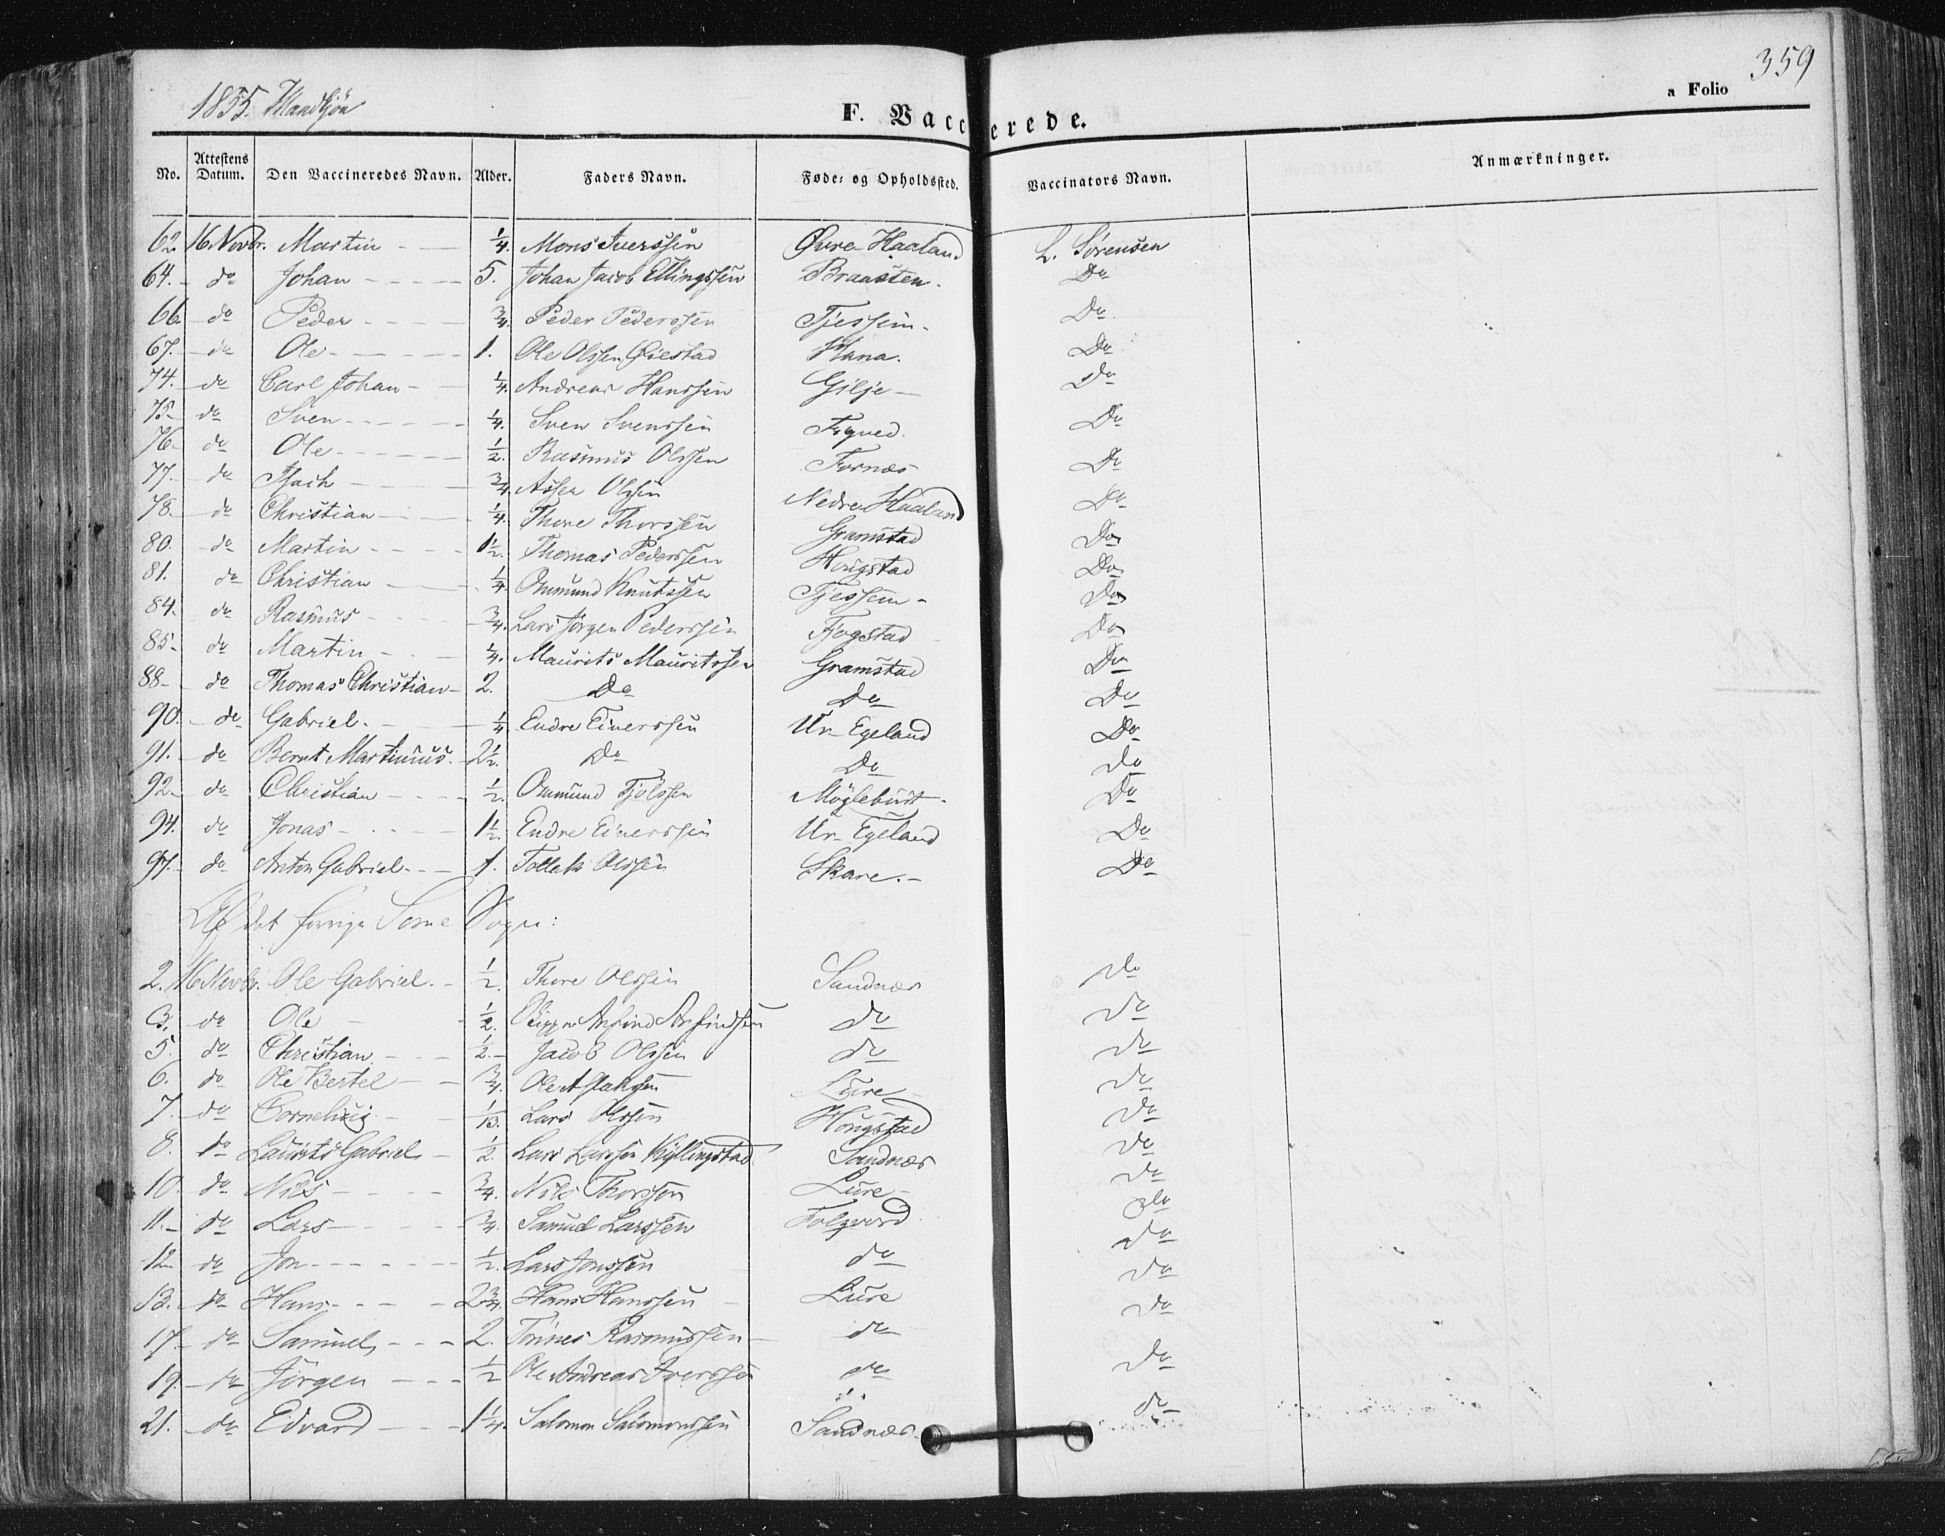 1855. Mandkjön
359
a Folio
F. Vaccinerede.
No. Attestens Datum. Den Vaccineredes Navn. Alder. Faders Navn. Føde- og Opholdssted. Vaccinators Navn. Anmærkninger.
62. 16 Novbr. Martin 1/4. Mons Iverssen Øvre Haaland L. Sørensen
64. do Johan 5. Johan Jacob Ellingssen Braasten. Do
66. do Peder 3/4. Peder Pederssen Tjessem. Do
67. do Ole 1. Ole Olssen Øiestad Hana. Do
74. do Carl Johan 1/4. Andreas Hanssen Gilje Do
75. do Sven 1/4. Sven Svenssen Do
76. do Ole 1/2. Rasmus Olssen Fornæs Do
77. do 3/4. Asser Olssen Nedre Haaland Do
78. do Christian 1/4. Thore Thorssen Gramstad Do
80. do Martin 1 1/2. Thomas Pederssen Hougstad Do
81. do Christian 1/4. Omund Knutssen Tjessem Do
84. do Rasmus 3/4. Lars Jørgen Pederssen Fjogstad Do
85. do Martin 1/4. Maurits Mauritssen Gramstad Do
88. do Thomas Christian 2. Do Do Do
90. do Gabriel. 1/4 Endre Einerssen Ur Egeland Do
91. do Bernt Martinius. 2 1/2. Do Do Do
92. do Christian 1/2. Omund Fjølssen Do
94. do Jonas 1 1/2. Endre Einerssen Ur Egeland Do
97. do Anton Gabriel. 1. Tollak Olssen Skare. Do
Af det forrige Some Sogn:
2. 16 Novbr. Ole Gabriel. 1/2. Thore Olssen Sandnæs do
3. do Ole 1/2. Arfind Arfindssen do do
5. do Christian 1/2. Jacob Olssen do do
6. do Ole Bertel 3/4. Ole Lure do
7. do Cornelius Lars Olssen Hougstad do
8. do Laurits Gabriel 1/2. Lars Larssen Kyllingstad Sandnæs do
10. do Nils 3/4. Nils Thorssen Lure do
11. do Lars 3/4. Samuel Larssen Folgvord. do
12 do Jon 1/2. Lars Jonssen do do
13. do Hans 2 3/4. Hans Hanssen Lure do
17 do Samuel 2. Tönnes Rasmussen do do
19. do Jörgen 1/2 Ole Andreas Iverssen do do
21. do Edvard 1 1/4. Salomon Salomonssen Sandnæs. do